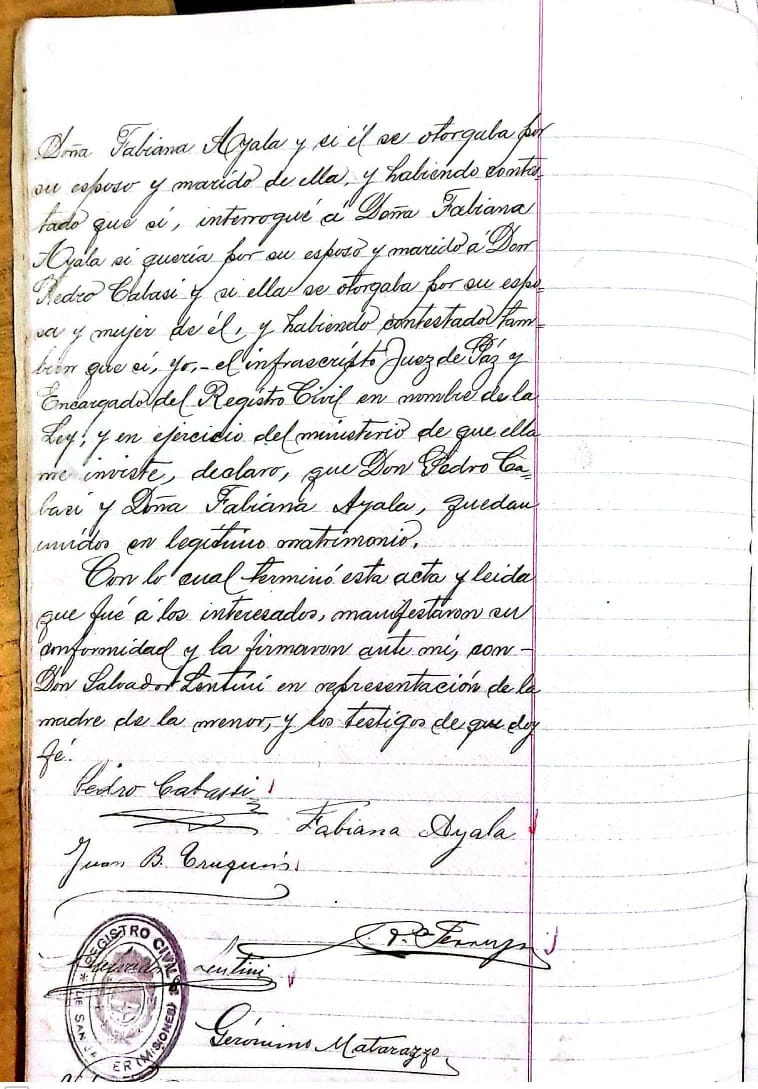 Doña Fabiana Ayala y si él se otorgaba por
su esposo y marido de ella, y habiendo contes-
tado que sí, interrogué á Doña Fabiana
Ayala si quería por su esposo y marido á Don
Pedro Cabasi y si ella se otorgaba por su espo-
sa y mujer de él, y habiendo contestado tam-
bien que sí, yo,- el infrascripto Juez de Páz y
Encargado del Registro Civil en nombre de la
Ley, y en ejercicio del ministerio de que ella
me inviste, declaro, que Don Pedro Ca-
basi y Doña Fabiana Ayala, quedan
unidos en legítimo matrimonio.
Con lo cual terminó esta acta y leida
que fué á los interesados, manifestaron su
conformidad y la firmaron ante mí, con-
Don Salvador Lentini en representación de la
madre de la menor, y los testigos de que doy
fé.
Pedro Cabassi
Fabiana Ayala
Juan B.
Salvador Lentini
Gerónimo Matarazzo
REGISTRO CIVIL
DE SAN JAVIER (MISIONES)